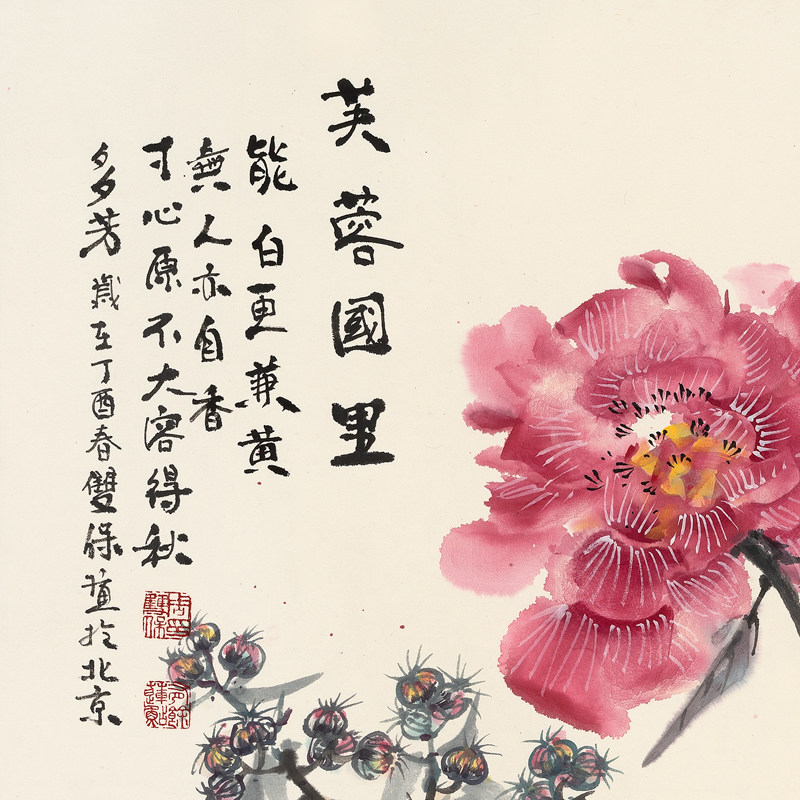 芙蓉國里
能白更兼黄
無人亦自香
寸心原不大容得秋
多芳歲在丁酉春雙保畫於北京